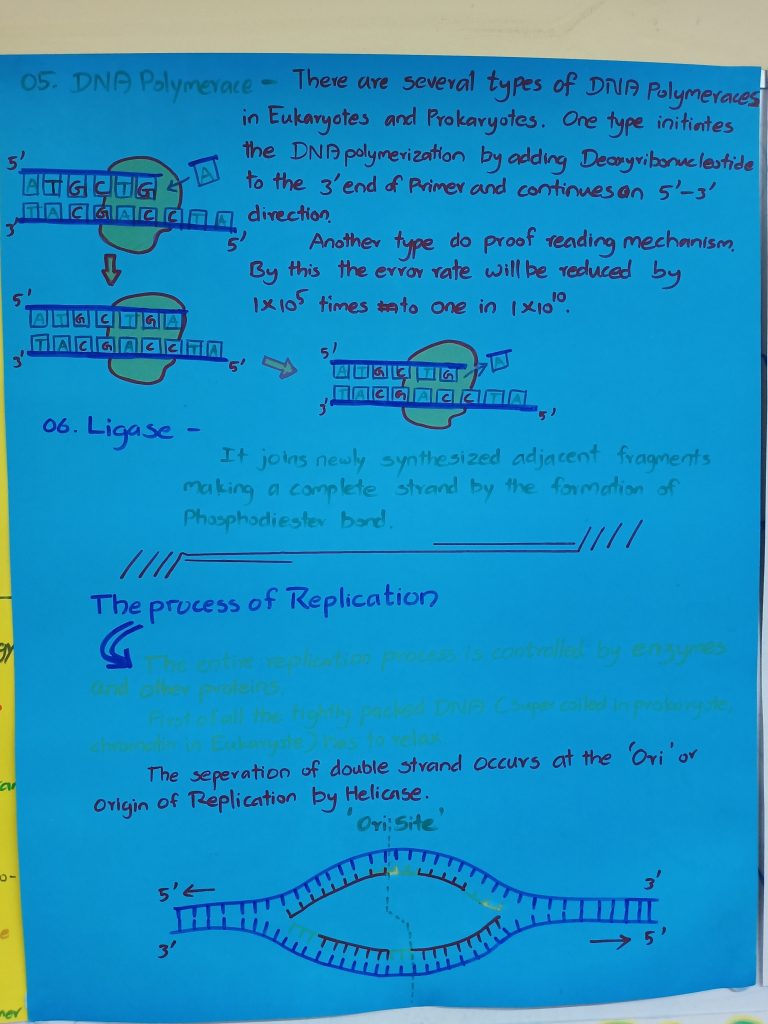 05. DNA Polymerace - There are several types of DNA Polymeraces
in Eukaryotes and Prokaryotes. One type initiates
the DNA polymerization by adding Deoxyribonucleotide
to the 3' end of Primer and continues on 5'-3'
direction.
Another type do proof reading mechanism.
By this the error rate will be reduced by
1×10⁵ times to one in 1×10¹⁰.
5'
A T G C T G
A
T A C G A C C T A
3'
5'
5'
A T G C T G A
T A C G A C C T A
3'
5'
5'
A T G C T G
A
T A C G A C C T A
3'
5'
06. Ligase -
It joins newly synthesized adjacent fragments
making a complete strand by the formation of
Phosphodiester bond.
The process of Replication
The entire replication process is controlled by enzymes
and other proteins.
First of all the tightly packed DNA (super coiled in prokaryote,
chromatin in Eukaryote) has to relax.
The seperation of double strand occurs at the 'Ori' or
origin of Replication by Helicase.
'Ori Site'
5'
3'
3'
5'